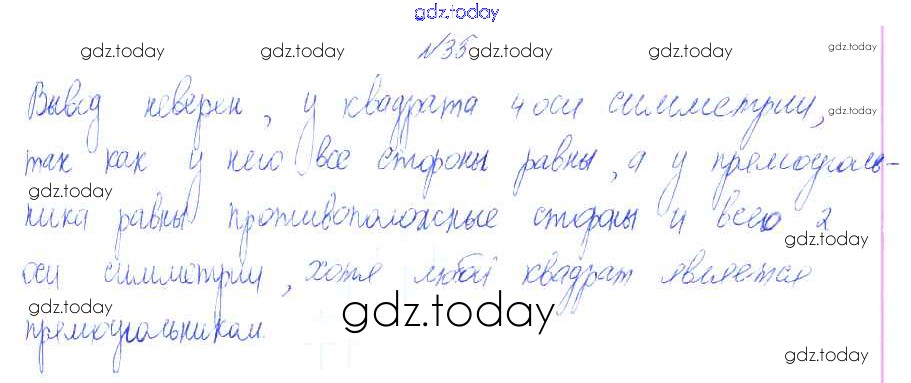 gdz.today
gdz.today gdz.today №35 gdz.today gdz.today gdz.today
Вывод неверен, у квадрата 4 оси симметрии, gdz.today
так как у него все стороны равны, а у прямоуголь-
gdz.today
ника равны противоположные стороны и всего 2
gdz.today
оси симметрии, хотя любой квадрат является
gdz.today
прямоугольником. gdz.today
gdz.today